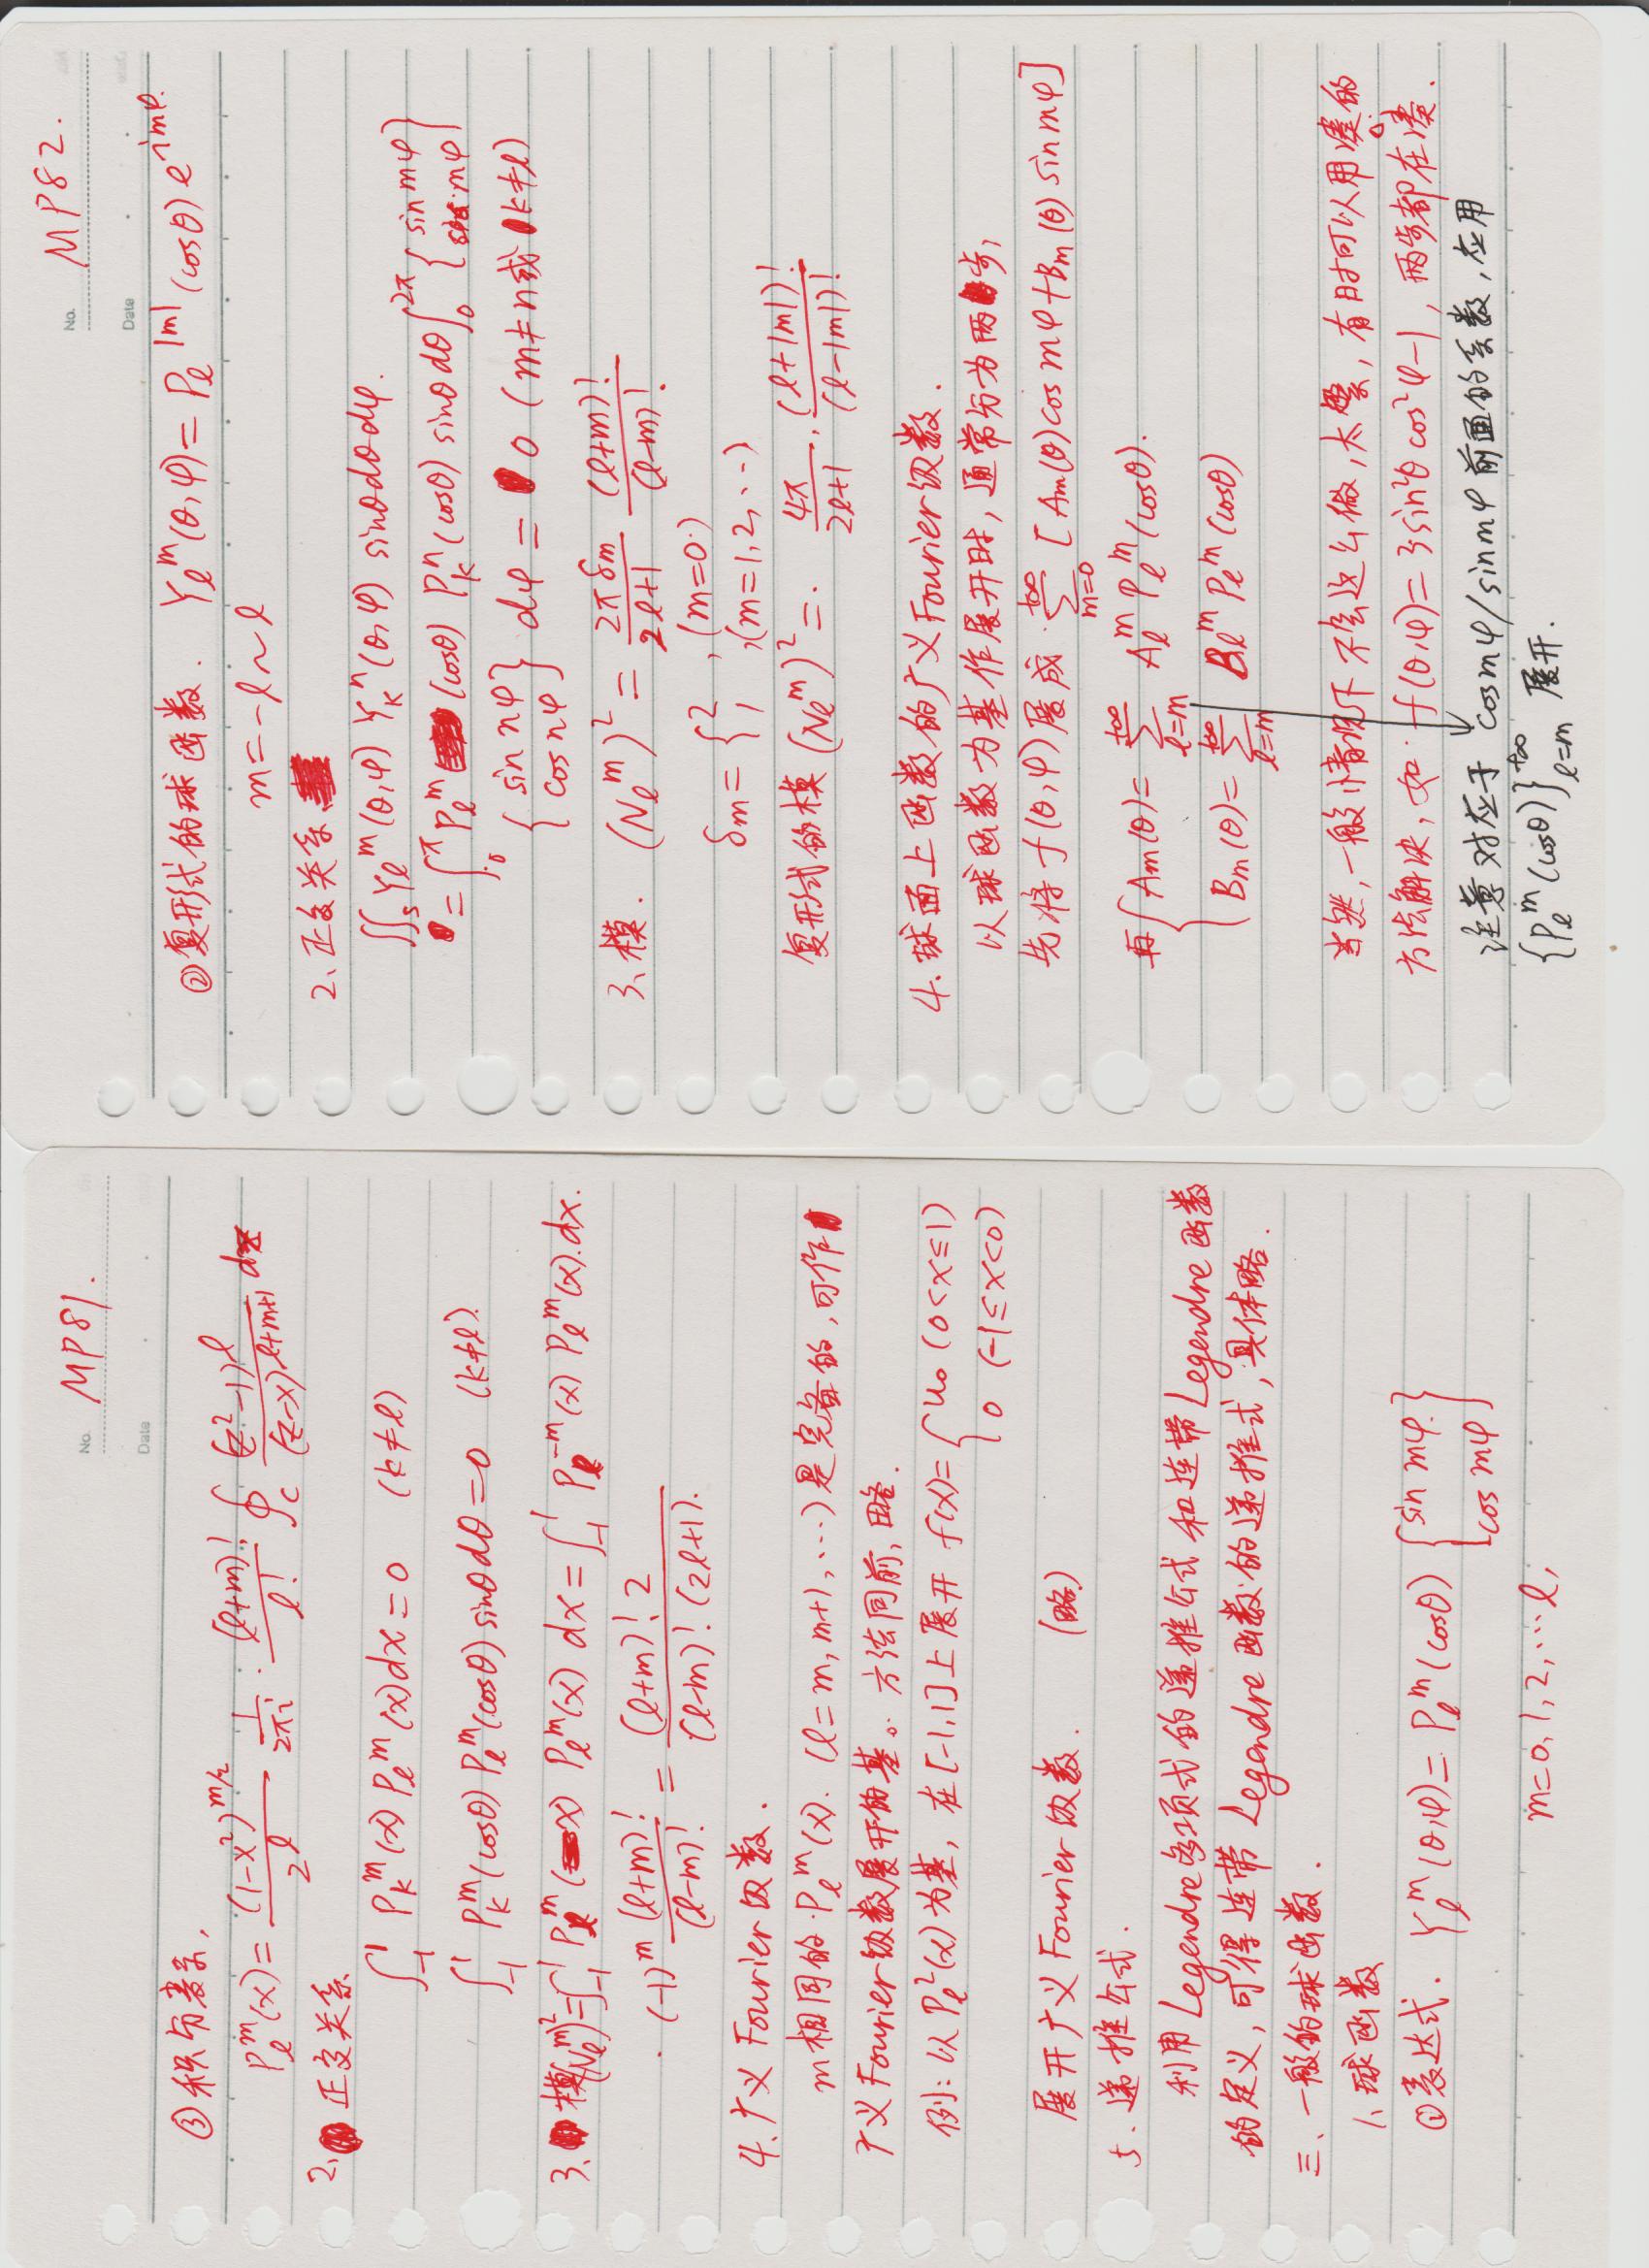 No. MP81.
Date
③积分表示,
P_l^m(x)= (1-x²)^{m/2}/2^l 1/2πi · (l+m)!/l! ∮_C (z²-1)^l/(z-x)^{l+m+1} dz
2、正交关系
∫_{-1}^1 P_k^m(x) P_l^m(x)dx=0 (k≠l)
∫_{-1}^1 P_k^m(cosθ) P_l^m(cosθ) sinθdθ=0 (k≠l).
3. 模(N_l^m)²=∫_{-1}^1 P_l^m(x) P_l^m(x) dx=∫_{-1}^1 P_l^{-m}(x) P_l^m(x).dx.
·(-1)^m (l+m)!/(l-m)! = (l+m)! 2/(l-m)! (2l+1).
4.广义Fourier级数.
m相同的·P_l^m(x). (l=m,m+1,…)是完备的,可作
广义Fourier级数展开的基。方法同前,略.
例:以P_l²(x)为基, 在[-1,1]上展开 f(x)={u₀ (0<x≤1)
0 (-1≤x<0)
展开广义Fourier级数. (略)
5.递推公式.
利用Legendre多项式的递推公式和连带Legendre函数
的定义,可得连带Legendre函数的递推式,具体略.
三、一般的球函数.
1、球函数
①表达式. Y_l^m(θ,φ)= P_l^m(cosθ) {sin mφ.
cos mφ}
m=0,1,2,…l,
No. MP82.
Date
②复形式的球函数. Y_l^m(θ,φ)=P_l^{|m|}(cosθ)e^{imφ}.
m=-l~l
2、正交关系、
∬_S Y_l^m(θ,φ) Y_k^n(θ,φ) sinθdθdφ.
=∫_0^π P_l^m (cosθ) P_k^n(cosθ) sinθdθ∫_0^{2π} {sin mφ
mφ}
{sin nφ
cos nφ} dφ = 0 (m≠n或k≠l)
3、模. (N_l^m)² = 2πδm/2l+1 (l+m)!/(l-m)!
δm={2 ,(m=0·)
1 ,(m=1,2,…)
复形式的模(N_l^m)²=. 4π/2l+1 · (l+|m|)!/(l-|m|)!
4.球面上函数的广义Fourier级数.
以球函数为基作展开时,通常分为两步,
先将f(θ,φ)展成·∑_{m=0}^{+∞} [Am(θ)cos mφ+Bm(θ) sin mφ]
再{Am(θ)=∑_{l=m}^{+∞} A_l^m P_l^m(cosθ).
Bm(θ)=∑_{l=m}^{+∞} B_l^m P_l^m(cosθ)
当然,一般情况下不会这么做,太繁,有时可以用凑的
方法解决,如·f(θ,φ)=3sin²θcos²φ-1, 两步都在凑.
注意对应于cosmφ/sinmφ前面的系数,应用
{P_l^m(cosθ)}_{l=m}^{+∞} 展开.